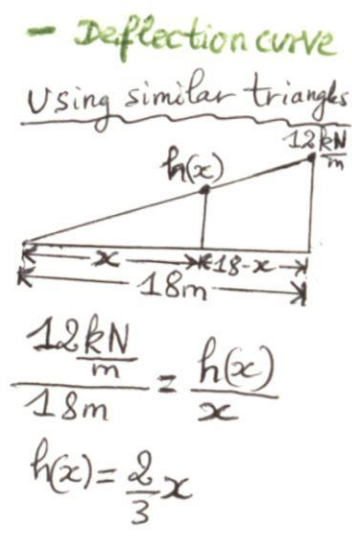 - Deflection curve
Using similar triangles
12 kN/m
h(x)
x
18-x
18m
12 kN/m / 18m = h(x)/x
h(x) = 2/3 x